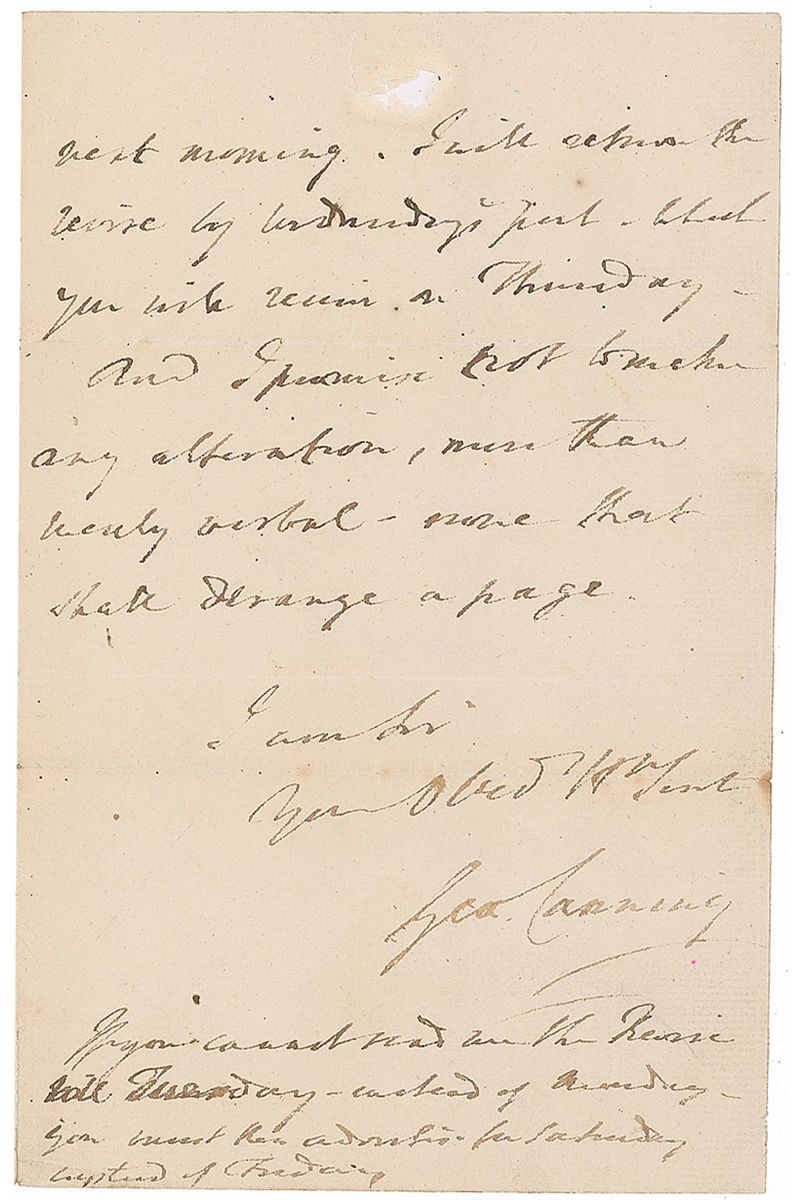 next morning. I will return the
revise by Wednesday's post - which
you will receive on Thursday -
And I promise not to make
any alteration, more than
merely verbal - none that
shall derange a page.
I am Sir
Your Obed H^le Servt
Geo. Canning
If you cannot send me the Revise
till Tuesday - instead of Monday -
you must then advertise for Saturday
instead of Friday